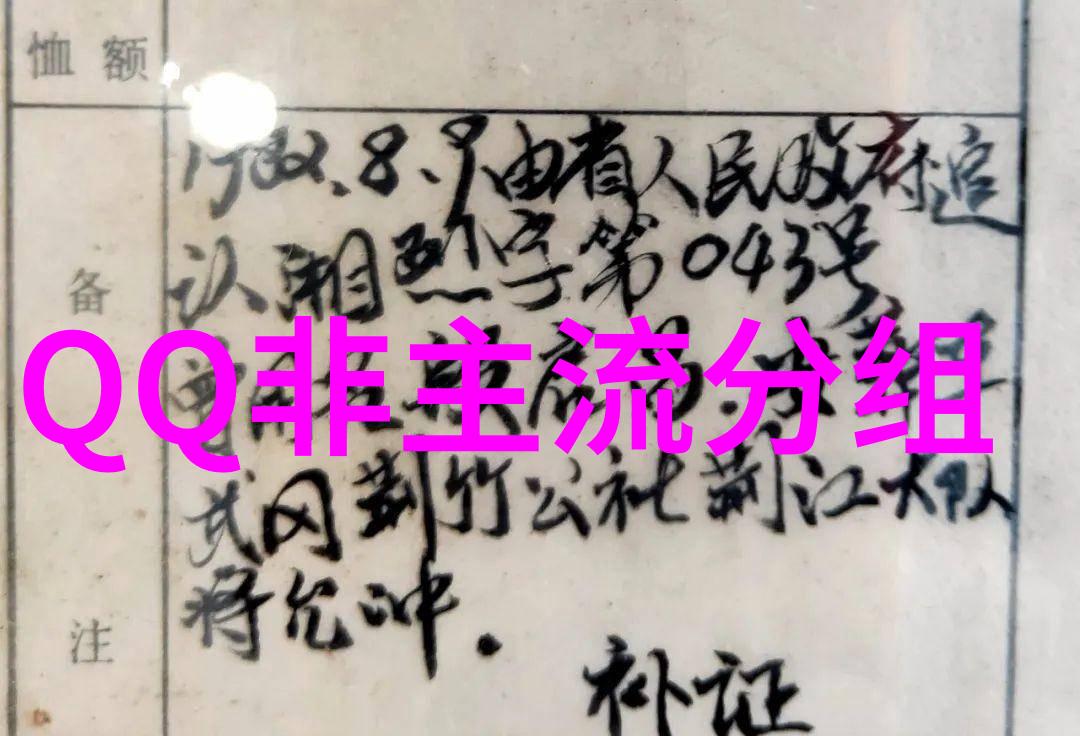 恤额
备注
1982.8.9由省人民政府追
认湘烈字第043号
QQ非主流分组
武冈荆竹公社荆江大队
蒋允冲.
补证